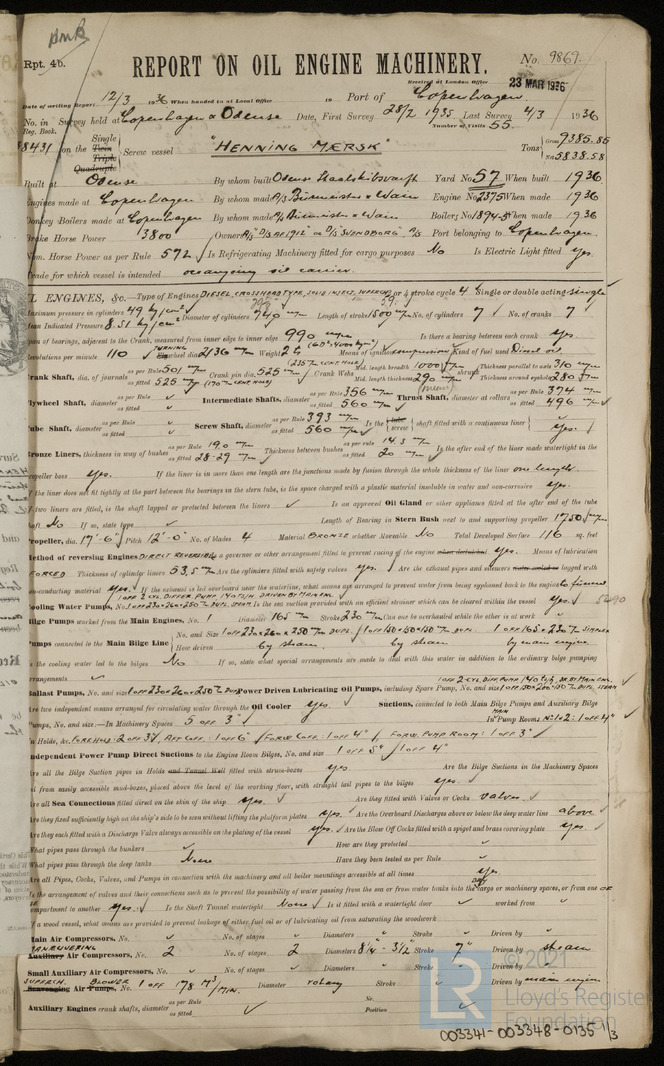 Rpt. 4b.
REPORT ON OIL ENGINE MACHINERY.
No. 9869.
Received at London Office 23 MAR 1936
Date of writing Report 12/3 1936 When handed in at Local Office 19 Port of Copenhagen
No. in Survey held at Copenhagen & Odense Date, First Survey 28/2 1935 Last Survey 4/3 1936
Reg. Book. Number of Visits 55.
on the Single Twin Triple Quadruple Screw vessel "HENNING MÆRSK" Tons Gross 9385.85 Net 5838.58
Built at Odense By whom built Odense Staalskibsværft Yard No 57 When built 1936
Engines made at Copenhagen By whom made A/S Burmeister & Wain Engine No 2375 When made 1936
Donkey Boilers made at Copenhagen By whom made A/S Burmeister & Wain Boiler No When made 1936
Brake Horse Power 3800 Owners Port belonging to Copenhagen.
Nom. Horse Power as per Rule 572 Is Refrigerating Machinery fitted for cargo purposes No Is Electric Light fitted yes.
Trade for which vessel is intended oceangoing oil carrier.
OIL ENGINES, &c.—Type of Engines DIESEL, CROSSHEAD TYPE, SOLID INJECT, 2 or 4 stroke cycle 4 Single or double acting single
Maximum pressure in cylinders 49 kg/cm² Diameter of cylinders 740 m/m Length of stroke 1500 m/m No. of cylinders 7 No. of cranks 7
Mean Indicated Pressure 8.51 kg/cm²
Span of bearings, adjacent to the Crank, measured from inner edge to inner edge 990 m/m Is there a bearing between each crank yes.
Revolutions per minute 110 TURNING wheel dia 2136 m/m Weight Means of ignition compression Kind of fuel used Diesel oil
Crank Shaft, dia. of journals as per Rule 501 m/m as fitted 525 m/m Crank pin dia. 525 m/m Crank Webs Mid. length breadth 1000 m/m Mid. length thickness 290 m/m shrunk Thickness parallel to axis 310 m/m Thickness around eyehole 280 m/m
Flywheel Shaft, diameter as per Rule as fitted Intermediate Shafts, diameter as per Rule 356 m/m as fitted 560 m/m Thrust Shaft, diameter at collars as per Rule 374 m/m as fitted 496 m/m
Tube Shaft, diameter as per Rule as fitted Screw Shaft, diameter as per Rule 393 m/m as fitted 560 m/m Is the tube screw shaft fitted with a continuous liner yes.
Bronze Liners, thickness in way of bushes as per Rule 19.0 m/m as fitted 28-29 m/m Thickness between bushes as per rule 14.3 m/m as fitted 20 m/m Is the after end of the liner made watertight in the
propeller boss yes. If the liner is in more than one length are the junctions made by fusion through the whole thickness of the liner one length.
If the liner does not fit tightly at the part between the bearings in the stern tube, is the space charged with a plastic material insoluble in water and non-corrosive yes.
If two liners are fitted, is the shaft lapped or protected between the liners Is an approved Oil Gland or other appliance fitted at the after end of the tube
shaft No If so, state type Length of Bearing in Stern Bush next to and supporting propeller 1750 m/m
Propeller, dia. 17'-6" Pitch 12'-0" No. of blades 4 Material BRONZE whether Moveable No Total Developed Surface 116 sq. feet
Method of reversing Engines DIRECT REVERSIBLE Is a governor or other arrangement fitted to prevent racing of the engine when declutched yes. Means of lubrication
FORCED Thickness of cylinder liners 53.5 m/m Are the cylinders fitted with safety valves yes. Are the exhaust pipes and silencers water cooled or lagged with
non-conducting material yes. If the exhaust is led overboard near the waterline, what means are arranged to prevent water being syphoned back to the engine to funnel
Cooling Water Pumps, No. Is the sea suction provided with an efficient strainer which can be cleared within the vessel yes.
Bilge Pumps worked from the Main Engines, No. 1 Diameter 165 m/m Stroke 230 m/m Can one be overhauled while the other is at work
Pumps connected to the Main Bilge Line No. and Size 1 OFF 230x260x250 m/m DUPL. 1 OFF 150x150x150 m/m DUPL 1 OFF 165x230 m/m SIMPLEX
How driven by steam. by steam. by main engine.
Is the cooling water led to the bilges No If so, state what special arrangements are made to deal with this water in addition to the ordinary bilge pumping
arrangements
Ballast Pumps, No. and size 1 OFF 230x260x250 m/m DUPL Power Driven Lubricating Oil Pumps, including Spare Pump, No. and size
Are two independent means arranged for circulating water through the Oil Cooler yes. Suctions, connected to both Main Bilge Pumps and Auxiliary Bilge
Pumps, No. and size:—In Machinery Spaces 5 off 3" In MAIN Pump Rooms No 1 & 2: 1 OFF 4"
In Holds, &c. FORE HOLD: 2 OFF 3½, AFT COFF: 1 OFF 6" FORW. COFF: 1 OFF 4" FORW. PUMP ROOM: 1 OFF 3"
Independent Power Pump Direct Suctions to the Engine Room Bilges, No. and size 1 OFF 5" 1 OFF 4"
Are all the Bilge Suction pipes in Holds and Tunnel Well fitted with strum-boxes yes Are the Bilge Suctions in the Machinery Spaces
led from easily accessible mud-boxes, placed above the level of the working floor, with straight tail pipes to the bilges yes.
Are all Sea Connections fitted direct on the skin of the ship yes. Are they fitted with Valves or Cocks valves.
Are they fixed sufficiently high on the ship's side to be seen without lifting the platform plates yes. Are the Overboard Discharges above or below the deep water line above
Are they each fitted with a Discharge Valve always accessible on the plating of the vessel yes. Are the Blow Off Cocks fitted with a spigot and brass covering plate yes
What pipes pass through the bunkers How are they protected
What pipes pass through the deep tanks None Have they been tested as per Rule
Are all Pipes, Cocks, Valves, and Pumps in connection with the machinery and all boiler mountings accessible at all times yes.
Is the arrangement of valves and their connections such as to prevent the possibility of water passing from the sea or from water tanks into the DRY cargo or machinery spaces, or from one
compartment to another yes. Is the Shaft Tunnel watertight None Is it fitted with a watertight door worked from
If a wood vessel, what means are provided to prevent leakage of either fuel oil or of lubricating oil from saturating the woodwork
Main Air Compressors, No. No. of stages Diameters Stroke Driven by
MANEUVERING
Auxiliary Air Compressors, No. 2 No. of stages 2 Diameters 8¼"-3½" Stroke 7" Driven by steam
Small Auxiliary Air Compressors, No. No. of stages Diameters Stroke Driven by
BLOWER
Scavenging Air Pumps, No. 1 OFF 178 M³/MIN. Diameter rotary Stroke Driven by main engine.
Auxiliary Engines crank shafts, diameter as per Rule as fitted No. Position
© 2021
LR
Lloyd's Register
Foundation
003341-003348-0135 1/3